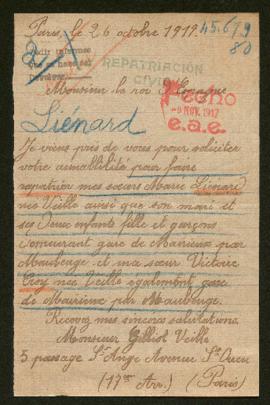 Paris, le 26 octobre 1917.
45.679
80
REPATRIACIÓN
CIVIL
Monsieur le roi d'Espagne
Fecho
-9 NOV. 1917
e.a.e.
Liénard
Je viens près de vous pour soliciter
votre aimabilité pour faire
repatrier mes sœurs Marie Liénard
née Veille ainsi que son mari et
ses deux enfants fille et garçons
demeurant gare de Mairieux par
Maubeuge. et ma sœur Victoire
née Veille egalement gare
de Mairieux par Maubeuge.
Recevez mes sincères salutations.
Monsieur Veille
5 passage St Ange Avenue St Ouen
(17me Arr.) (Paris)